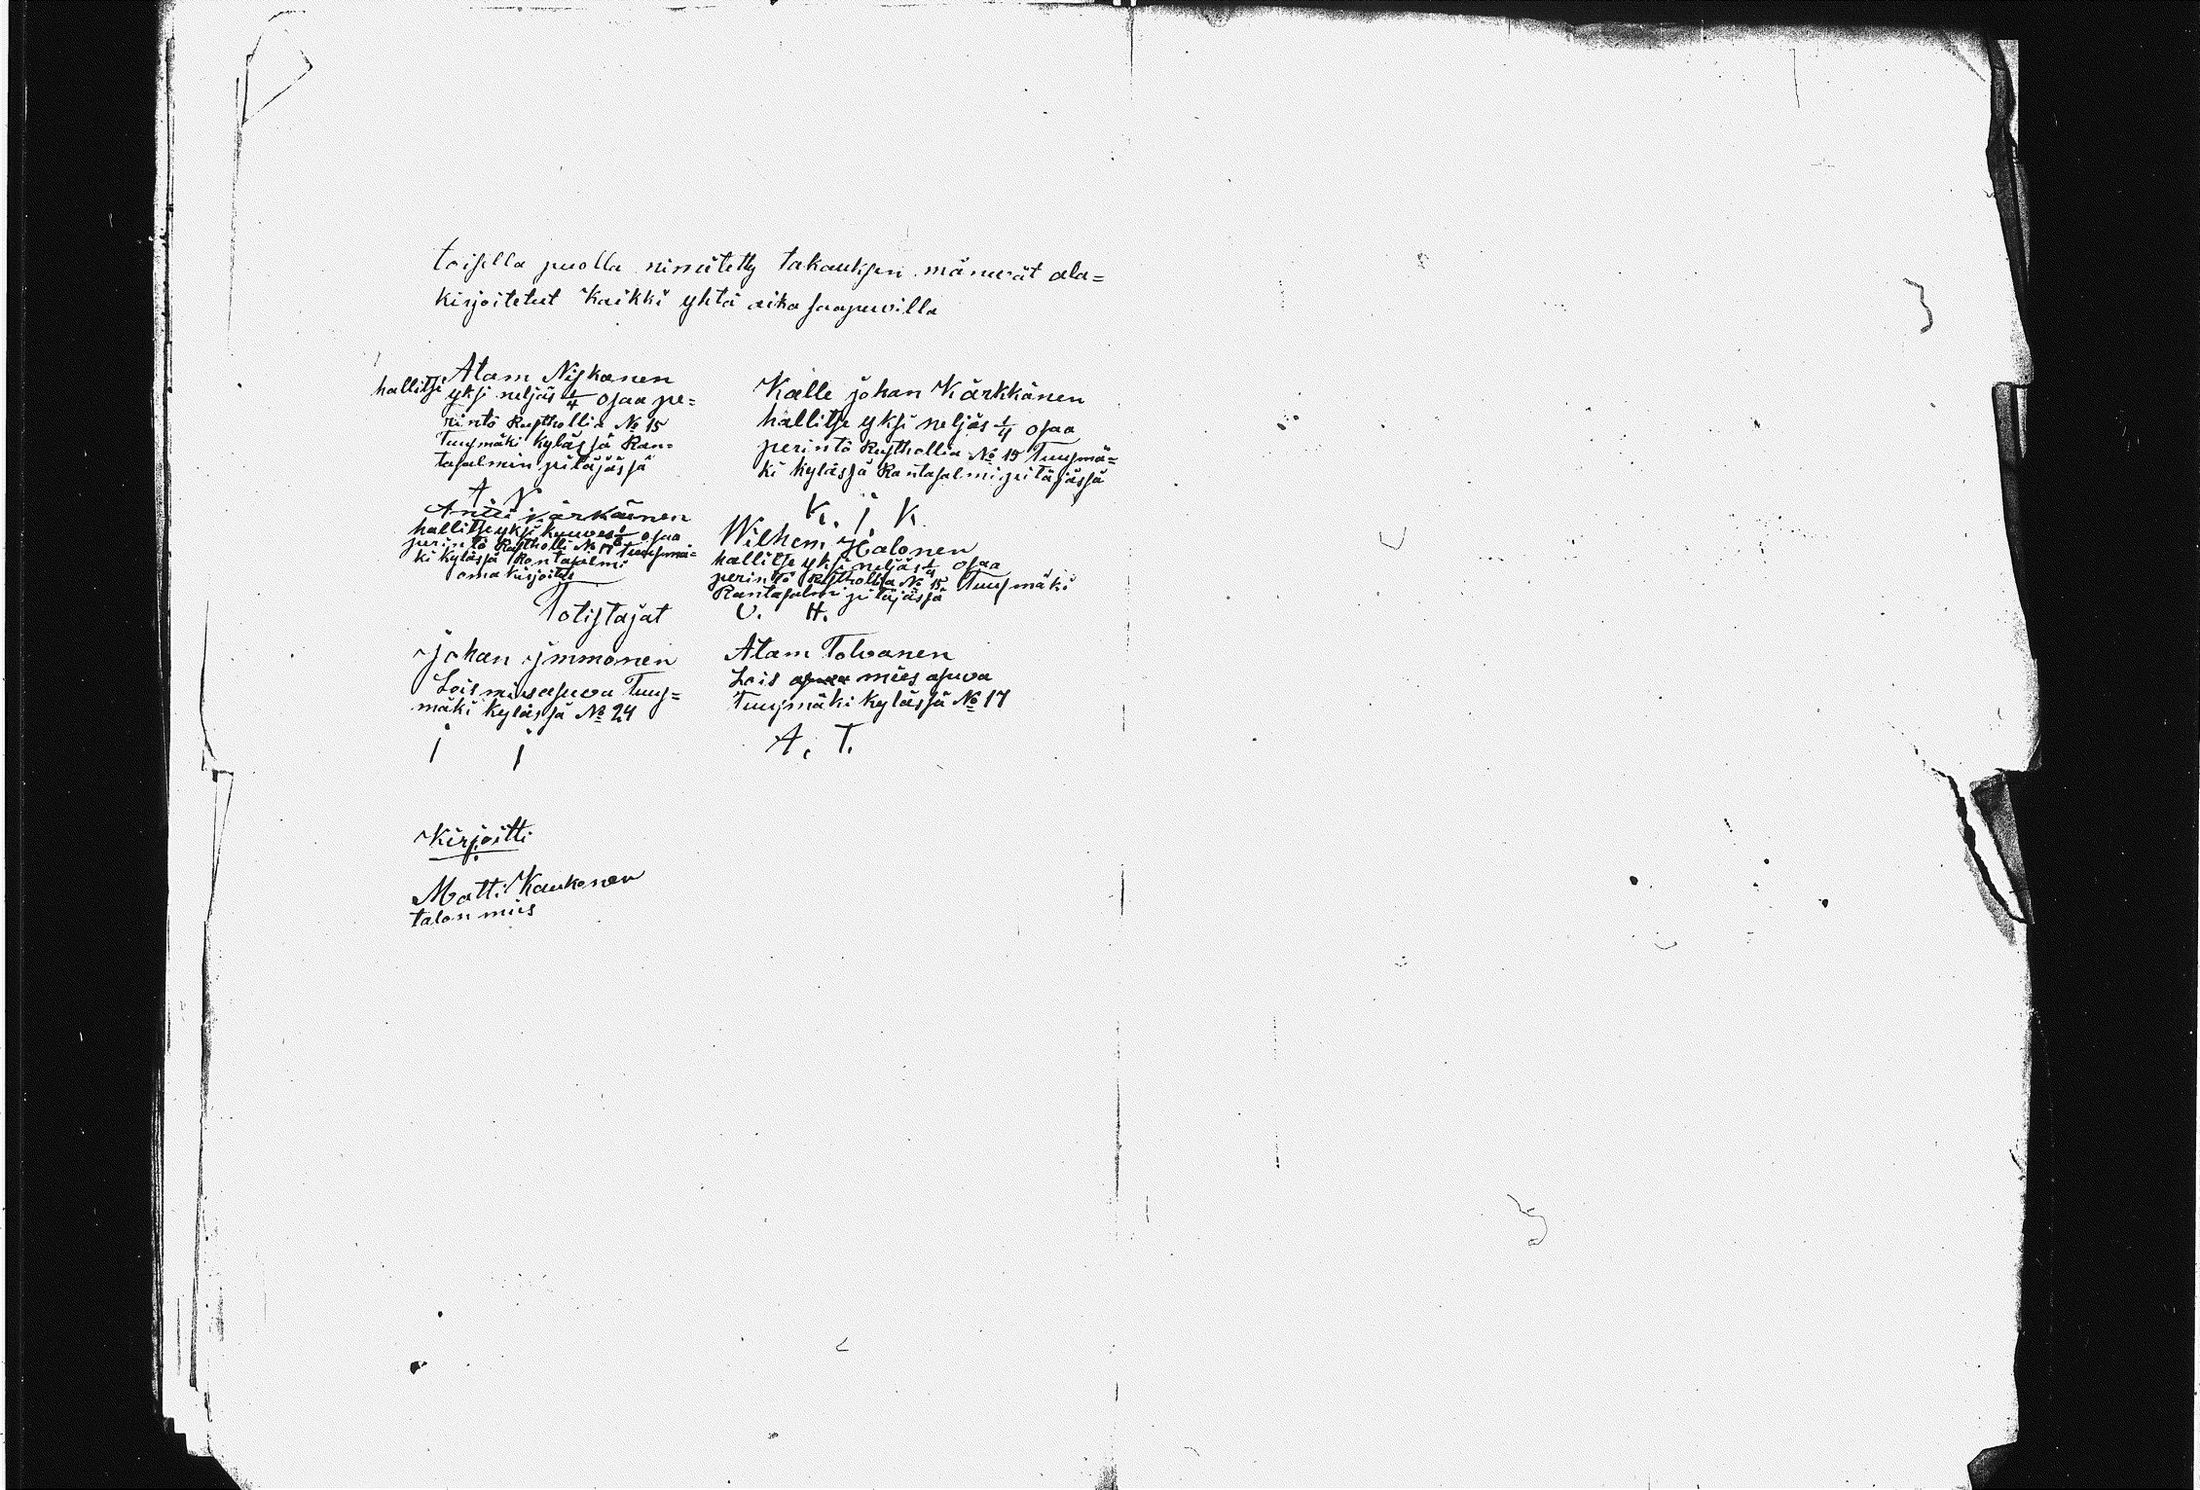 toisella puolla nimitetty takauksen mänevät ala=
kirjoitetut Kaikki yhtä aika saapuvilla
Atam Niskanen
hallitsi yksi neljäs 1/4 osaa pe=
rintö Rusthollia № 15
Tuusmäki kylässä Ran=
tasalmin pitäjässä
A N
Kalle johan Kärkkänen
hallitse yksi neljäs 1/4 osaa
perintö Rusthollia № 15 Tuusmä=
ki kylässä Rantasalmi pitäjässä
K. j. K
Antti Kärkäinen
hallitse yksi kuuves 1/6 osaa
perintö Rustholli № 17 Tuusmä=
ki kylässä Rantasalmi
oma kirjoitus
Wilhem Halonen
hallitse yksi neljäs 1/4 osaa
perintö Rusthollia № 15 Tuusmäki
Rantasalmi pitäjässä
V. H.
Totistajat
Johan Jmmonen
Lois mies asuva Tuus=
mäki kylässä № 24
j j
Atam Tolvanen
Lois asuva mies asuva
Tuusmäki kylässä № 17
A. T.
Kirjoitti
Matti Kaukonen
talon mies